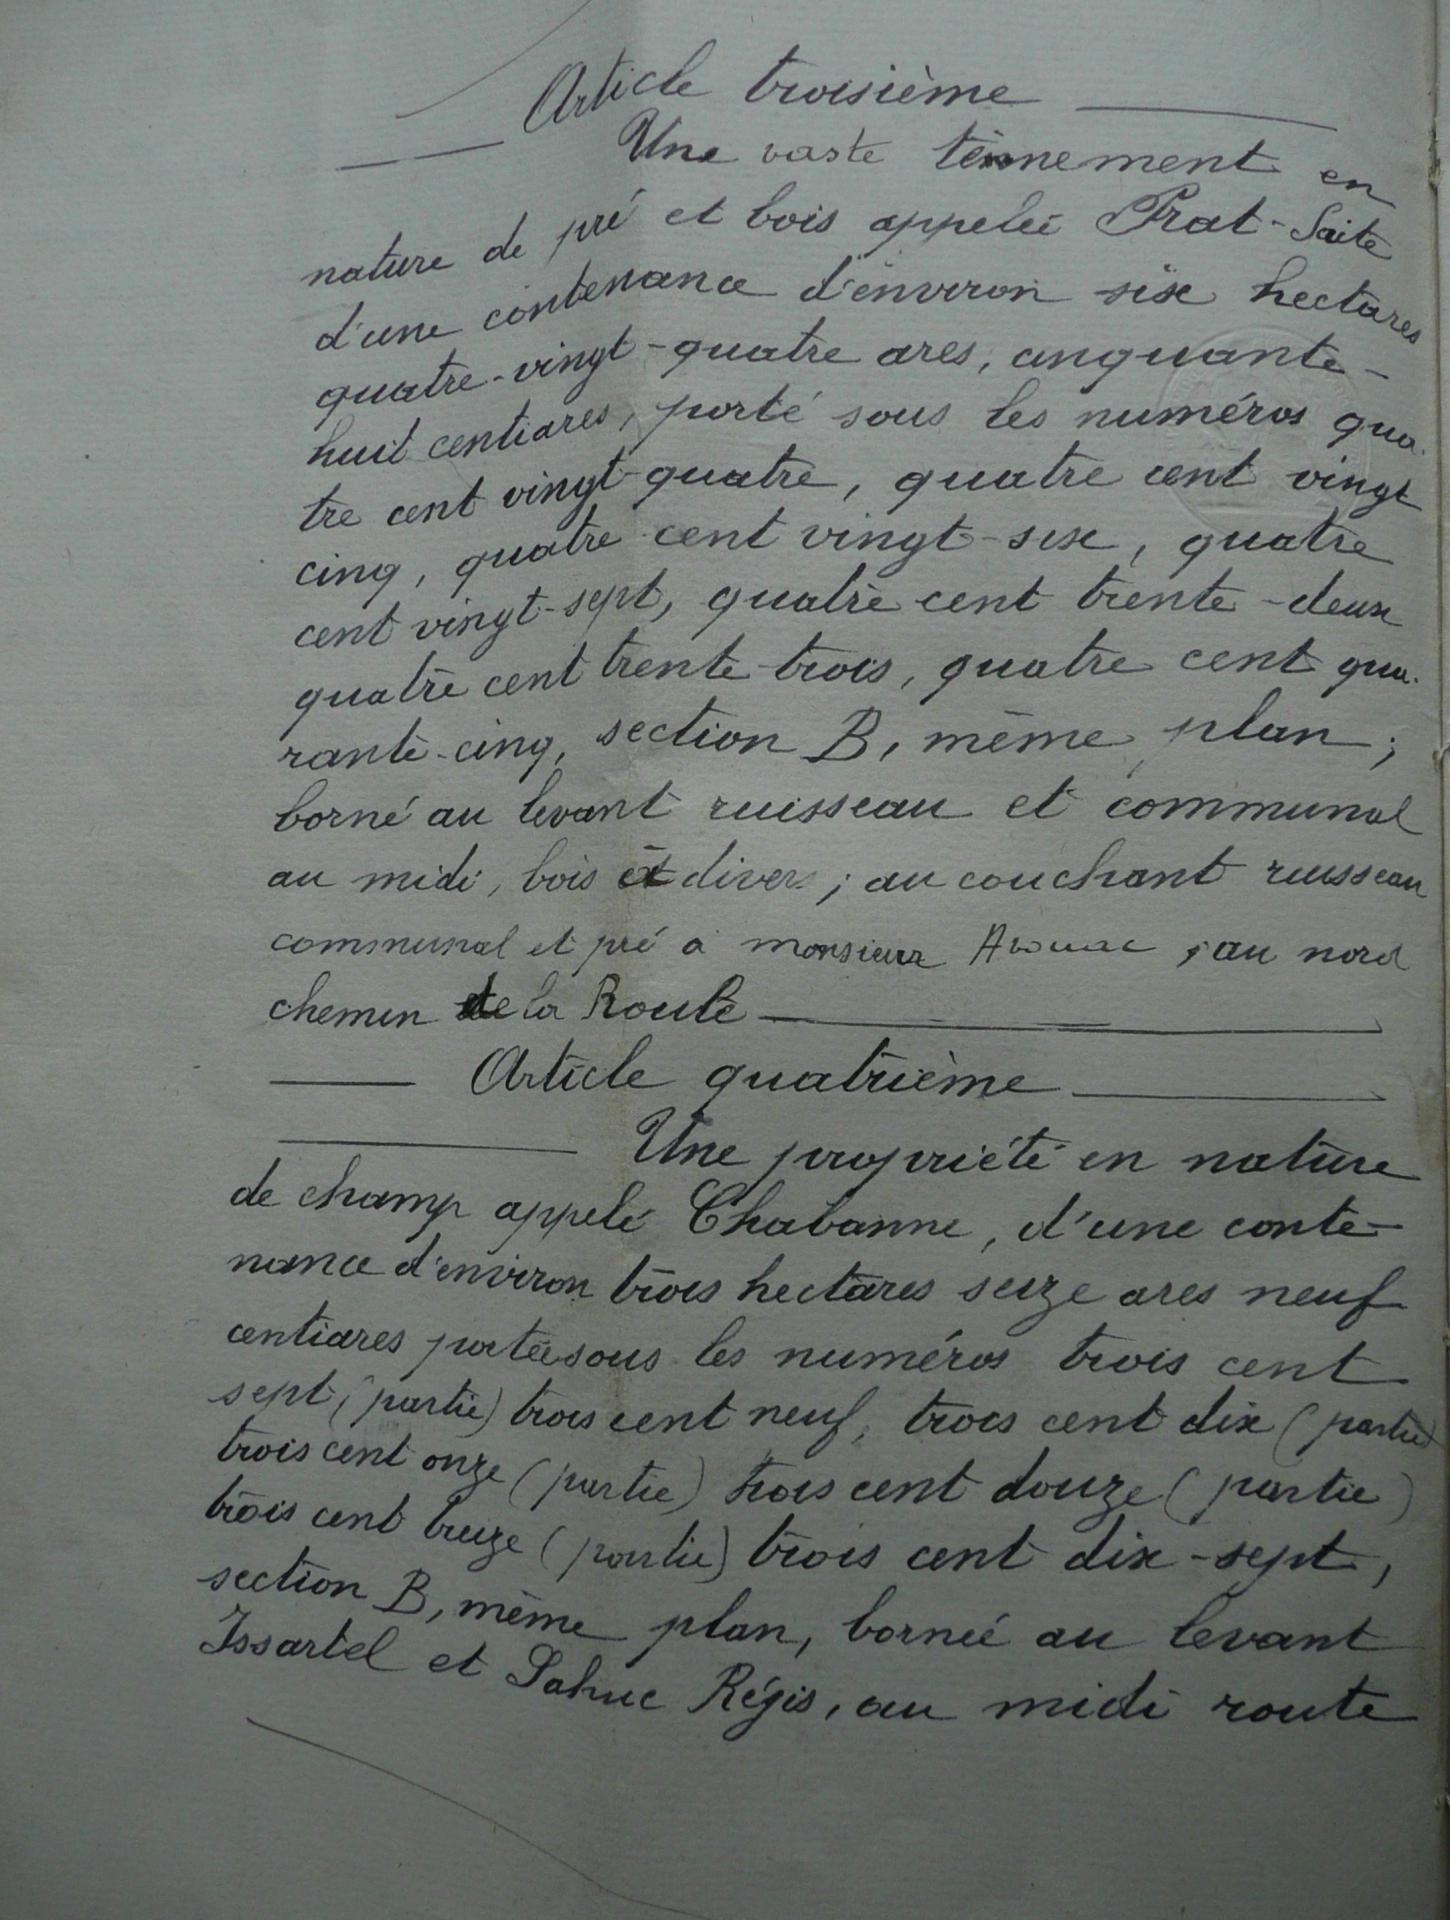 Article troisième
Une vaste tènnement en
nature de pré et bois appelée Prat-Saite
d'une contenance d'environ six hectares
quatre-vingt-quatre ares, cinquante-
huit centiares, porté sous les numéros qua-
tre cent vingt-quatre, quatre cent vingt
cinq, quatre cent vingt-six, quatre
cent vingt-sept, quatre cent trente-deux
quatre cent trente-trois, quatre cent qua-
rante-cinq, section B, même plan;
borné au levant ruisseau et communal
au midi, bois et divers; au couchant ruisseau
communal et pré à monsieur ; au nord
chemin de la Route
Article quatrième
Une propriété en nature
de champ appelé Chabanne, d'une conte-
nance d'environ trois hectares seize ares neuf
centiares portée sous les numéros trois cent
sept (partie) trois cent neuf, trois cent dix (partie)
trois cent onze (partie) trois cent douze (partie)
trois cent treize (partie) trois cent dix-sept,
section B, même plan, bornée au levant
Issartel et Sahuc Régis, au midi route